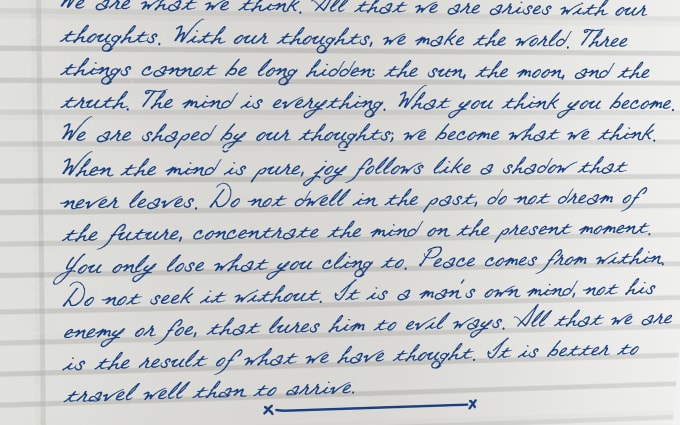 We are what we think. All that we are arises with our
thoughts. With our thoughts, we make the world. Three
things cannot be long hidden: the sun, the moon, and the
truth. The mind is everything. What you think you become.
We are shaped by our thoughts; we become what we think.
When the mind is pure, joy follows like a shadow that
never leaves. Do not dwell in the past, do not dream of
the future, concentrate the mind on the present moment.
You only lose what you cling to. Peace comes from within.
Do not seek it without. It is a man's own mind, not his
enemy or foe, that lures him to evil ways. All that we are
is the result of what we have thought. It is better to
travel well than to arrive.